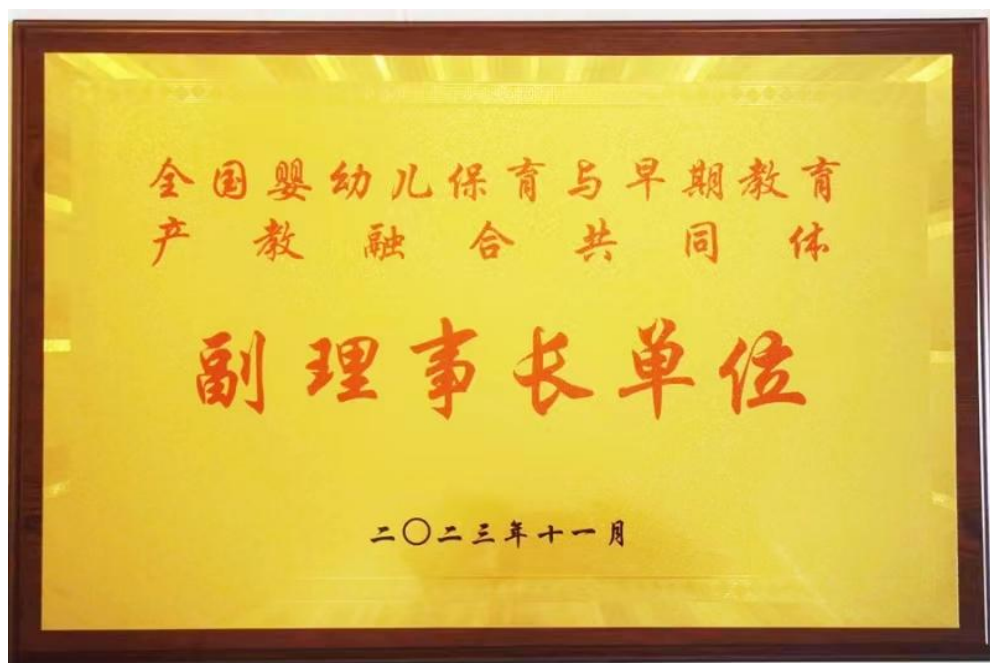 全国婴幼儿保育与早期教育
产教融合共同体
副理事长单位
二〇二三年十一月